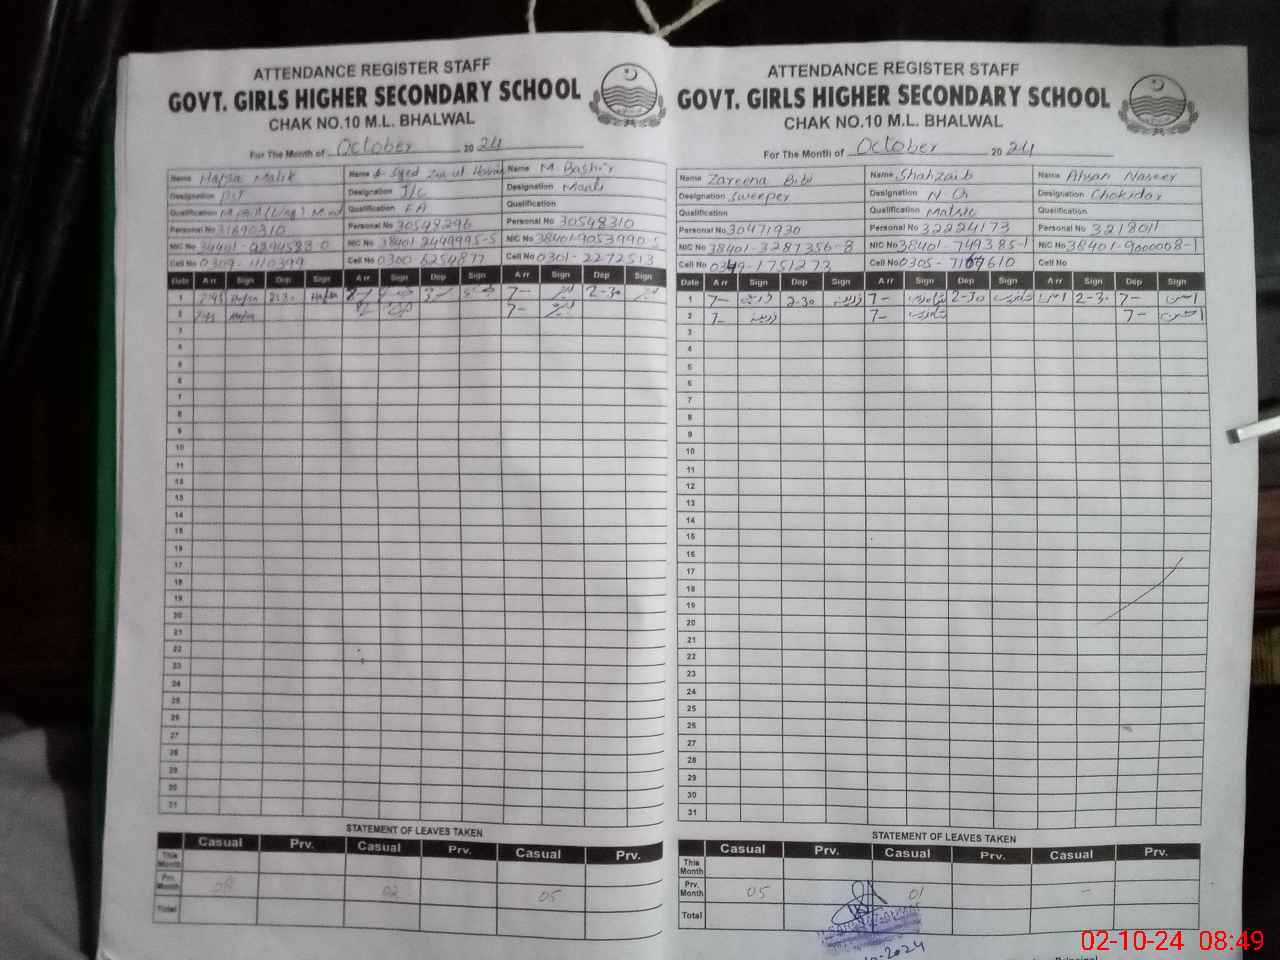 ATTENDANCE REGISTER STAFF
GOVT. GIRLS HIGHER SECONDARY SCHOOL
CHAK NO.10 M.L. BHALWAL
For The Month of October 2024
Name Hafsa Malik Name Syed Name M. Bashir
Designation Designation J/C Designation Maali
Qualification Qualification FA Qualification
Personal No 31690310 Personal No 30548296 Personal No 30548310
NIC No NIC No 38401-2449995-5 NIC No 38401-9053990-5
Cell No 0309-1110399 Cell No 0300 6254877 Cell No 0301-2272513
Date Arr Sign Dep Sign Arr Sign Dep Sign Arr Sign Dep Sign
1 7:45 Hafsa 2:30 Hafsa 7- 2-30
2 7:45 Hafsa 7-
3
4
5
6
7
8
9
10
11
12
13
14
15
16
17
18
19
20
21
22
23
24
25
26
27
28
29
30
31
STATEMENT OF LEAVES TAKEN
Casual Prv. Casual Prv. Casual Prv.
This Month
Prv. Month 08 02 05
Total
ATTENDANCE REGISTER STAFF
GOVT. GIRLS HIGHER SECONDARY SCHOOL
CHAK NO.10 M.L. BHALWAL
For The Month of October 2024
Name Zareena Bibi Name Shahzaib Name Ahsan Naseer
Designation Sweeper Designation N. Q Designation Chokidar
Qualification Qualification Matric Qualification
Personal No 30471930 Personal No 32224173 Personal No 3218011
NIC No 38401-3287356-8 NIC No 38401-749385-1 NIC No 38401-9000008-1
Cell No 0349-1751273 Cell No 0305-7167610 Cell No
Date Arr Sign Dep Sign Arr Sign Dep Sign Arr Sign Dep Sign
1 7- زرینہ 2-30 زرینہ 7- شاہزیب 2-30 شاہزیب 2-30 7-
2 7- زرینہ 7- شاہزیب 7-
3
4
5
6
7
8
9
10
11
12
13
14
15
16
17
18
19
20
21
22
23
24
25
26
27
28
29
30
31
STATEMENT OF LEAVES TAKEN
Casual Prv. Casual Prv. Casual Prv.
This Month
Prv. Month 05 01 -
Total
02-10-24 08:49